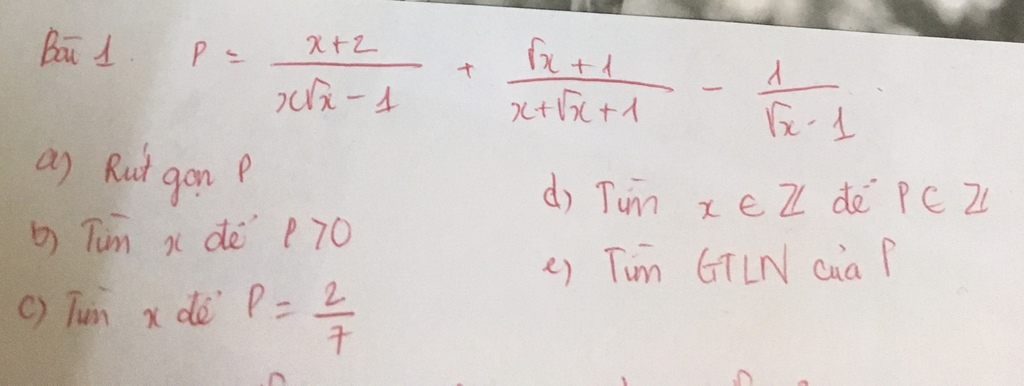 Bài 1. P = (x+2)/(x√x - 1) + (√x + 1)/(x+√x+1) - 1/(√x - 1).
a) Rút gọn P
b) Tìm x để P>0
c) Tìm x để P = 2/7
d) Tìm x ∈ Z để P ∈ Z
e) Tìm GTLN của P